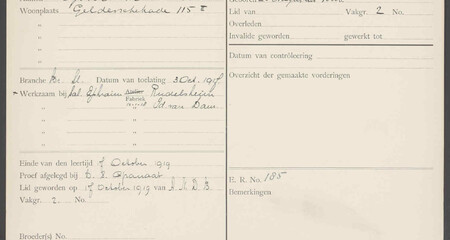 Woonplaats Gelderschekade 115 I
"
"
Branche Kr. U. Datum van toelating 3 Oct. 1917
Werkzaam bij Sal. Ephraim Atelier Rudelsheijm
" Fabriek Ed. van Dam
"
"
"
Einde van den leertijd 1 October 1919
Proef afgelegd bij
Lid geworden op 17 October 1919 van A. N. D. B.
Vakgr. 2 No.
Broeder(s) No.
Geboren
Lid van Vakgr. 2 No.
Overleden
Invalide geworden gewerkt tot
Datum van controleering
Overzicht der gemaakte vorderingen
E. R. No. 185
Bemerkingen